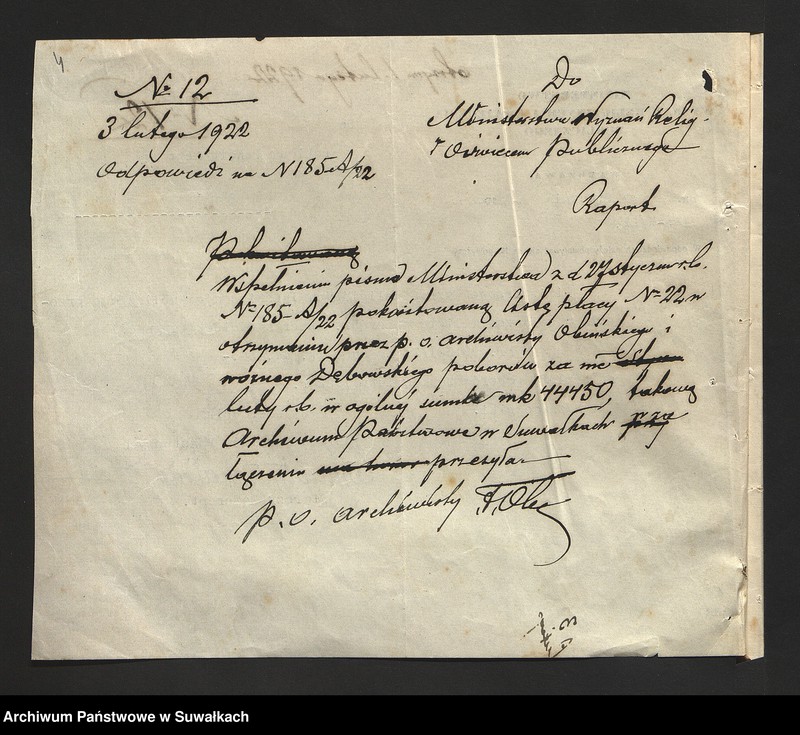 4
№ 12
3 lutego 1922
Odpowiedź na N 185-A/22
Do
Ministerstwa Wyznań Relig.
i Oświecen. Publicznego
Raport
Pokwitowaną
W spełnieniu pisma Ministerstwa z d 27 stycznia r.b.
№ 185-A/22 pokwitowaną listę płacy № 22 w
otrzymaniu przez p. o. archiwisty Obińskiego i
woźnego Dębowskiego poborów za mc
luty r.b. w ogólnej sumie mk 44450, takową
Archiwum Państwowe w Suwałkach przy
łączeniu przesyła
p. o. archiwisty
Archiwum Państwowe w Suwałkach